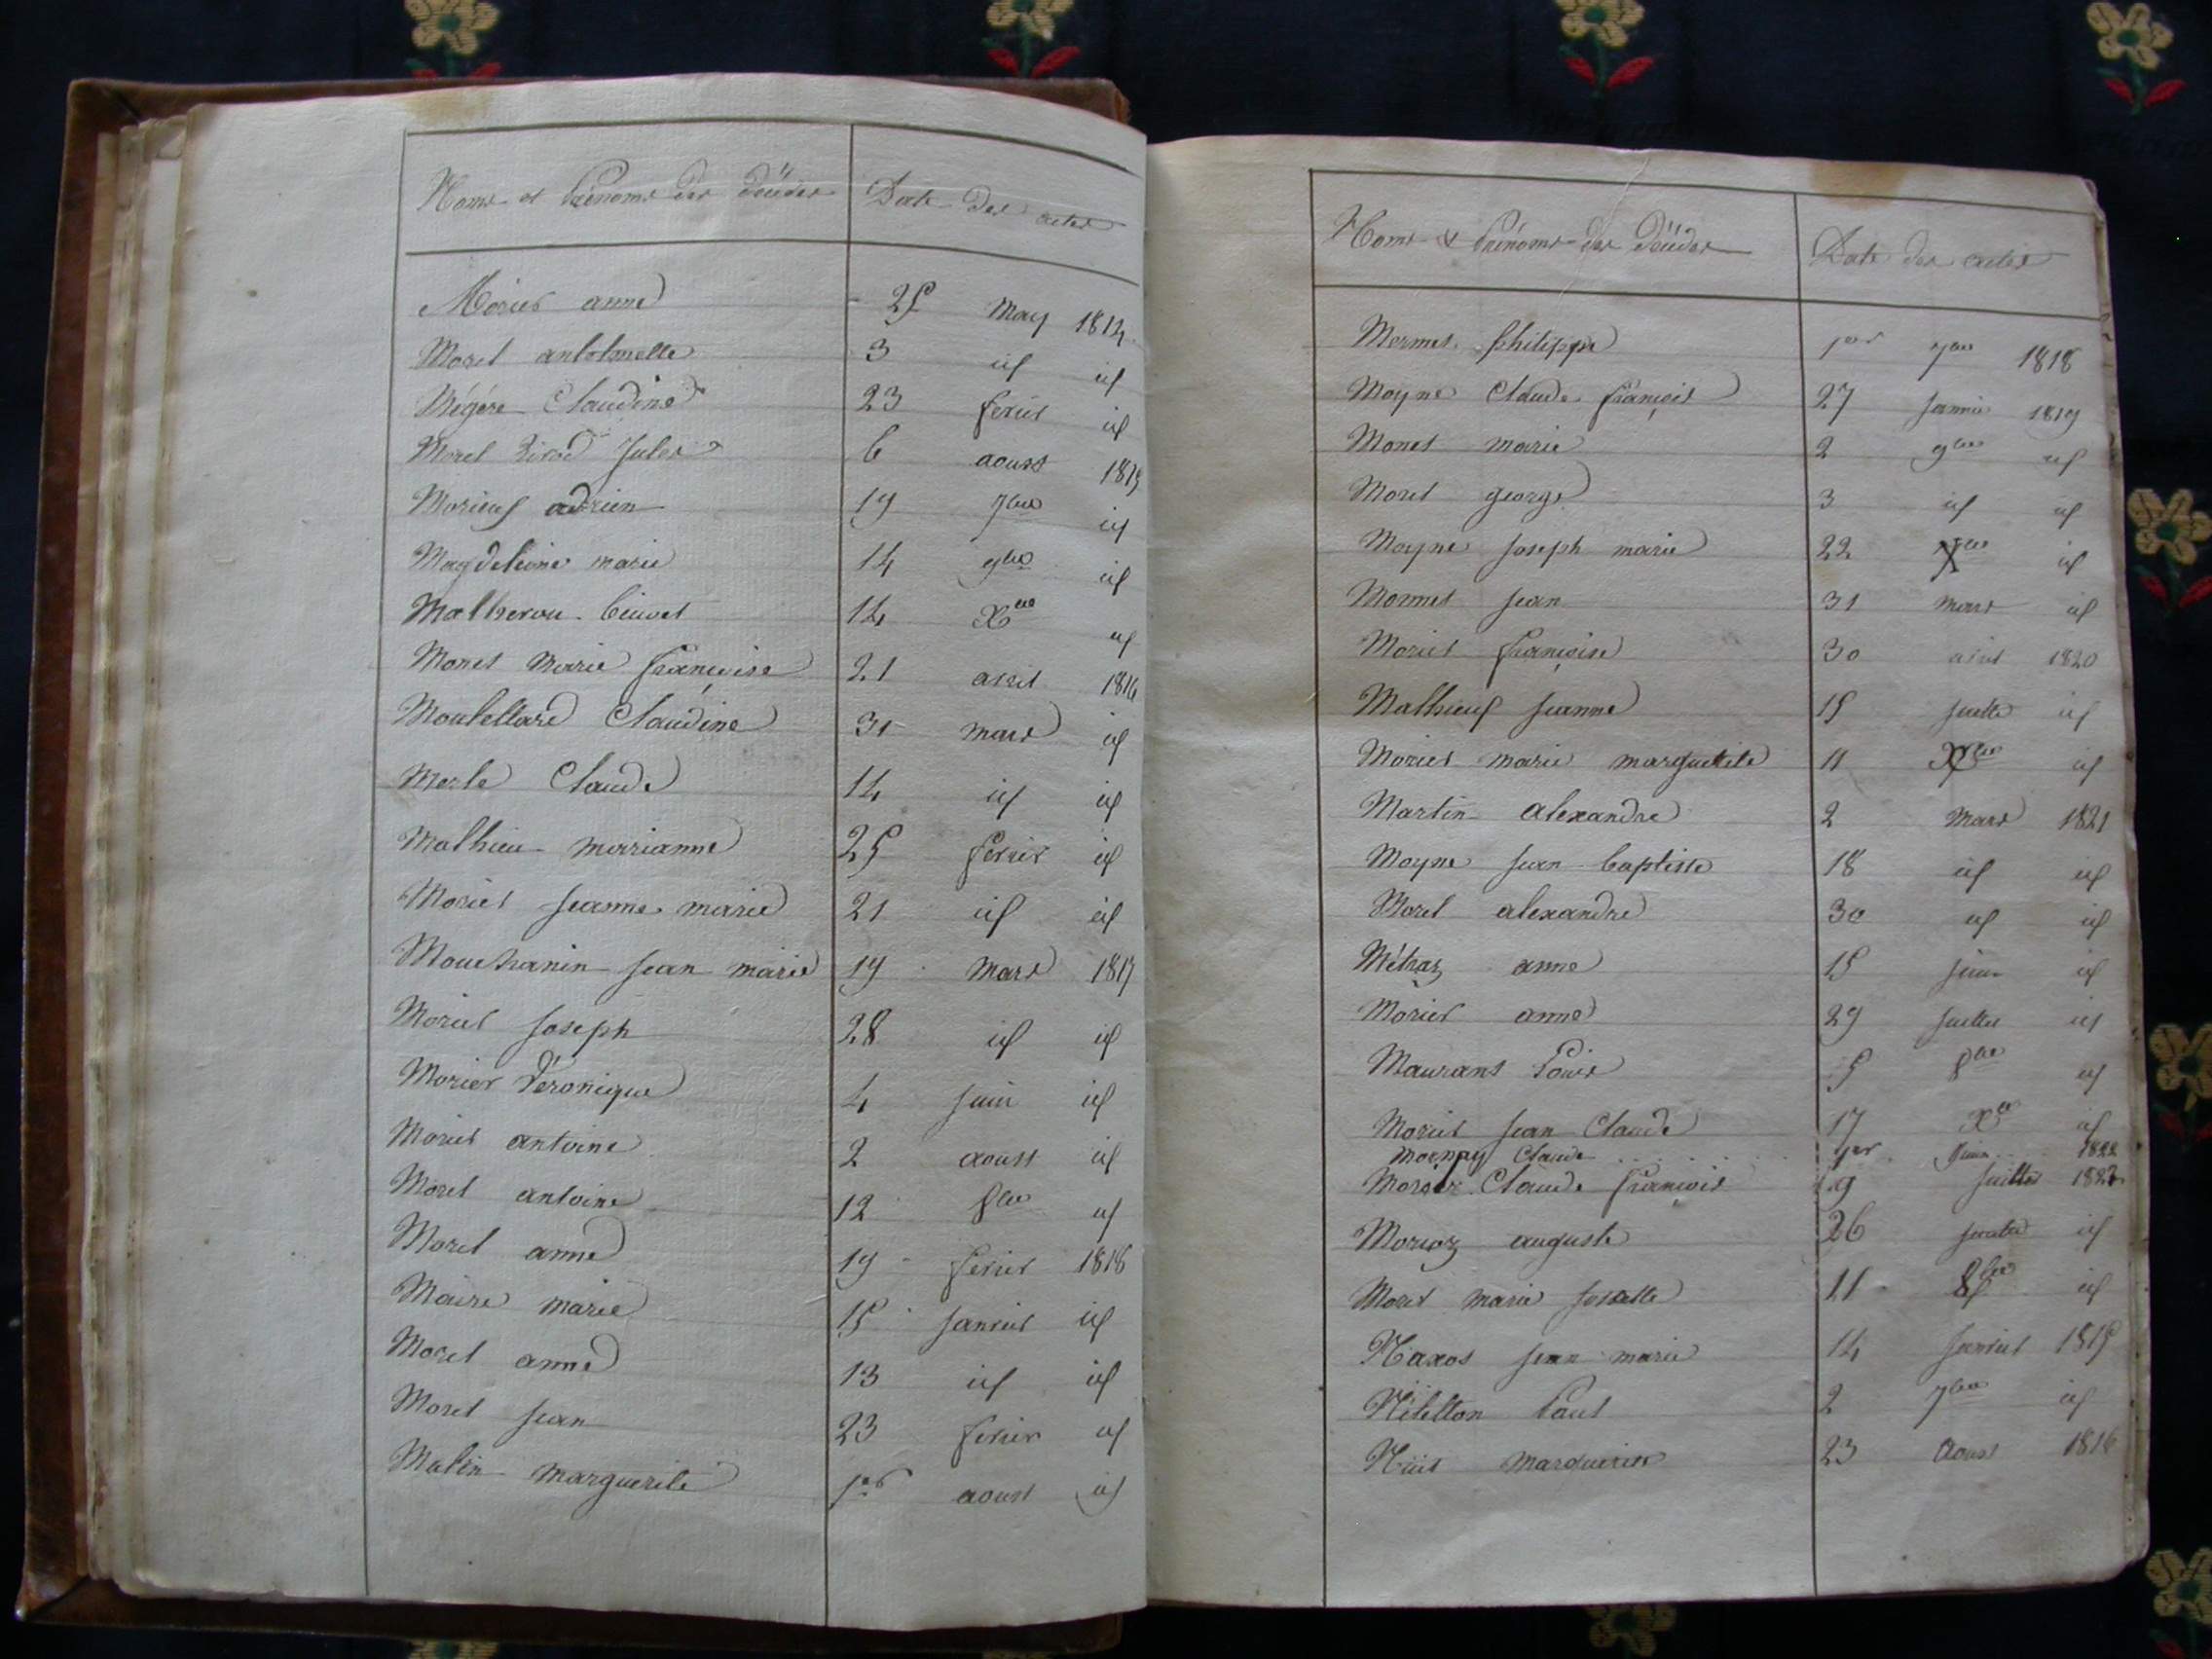 Noms et Prénoms des décédés Date des actes
Morier anne 25 May 1814
Morel antoinette 3 id id
Mégére Claudine 23 fevrier id
Morel Jules 6 aoust 1815
Morieuf adrien 19 7bre id
Magdeleine marie 14 9bre id
Matherou 14 Xbre id
Monet Marie françoise 21 avril 1816
Moutellard Claudine 31 mars id
Merle Claude 14 id id
Mathieu marianne 25 fevrier id
Moriet jeanne marie 21 id id
Mouchanin jean marie 19 mars 1817
Moriet Joseph 28 id id
Morier Véronique 4 juin id
Moriet antoine 2 aoust id
Morel antoine 12 8bre id
Morel anne 19 fevrier 1818
Maire marie 15 janvier id
Morel anne 13 id id
Morel jean 23 fevrier id
Matin marguerite 1er aoust id
Noms & Prénoms des décédés Date des actes
Mermet philippe 1er 7bre 1818
Moyne Claude françois 27 janvier 1819
Monet marie 2 9bre id
Morel george 3 id id
Moyne joseph marie 22 Xbre id
Monnet jean 31 mars id
Moriet françoise 30 avril 1820
Mathieuf jeanne 15 juillet id
Moriet marie marguerite 11 Xbre id
Martin alexandre 2 mars 1821
Moyne jean baptiste 18 id id
Morel alexandre 30 id id
Métraz anne 15 juin id
Morier anne 29 juillet id
Maurans Louis 5 8bre id
Moriet jean Claude 17 Xbre id
Mornay Claude 1er juin 1822
Claude françois 9 juillet 1822
Morioz auguste 26 juillet id
Morel marie josette 11 8bre id
Naxos jean marie 14 janvier 1815
Nételton Paul 2 7bre id
marguerite 23 Aoust 1816